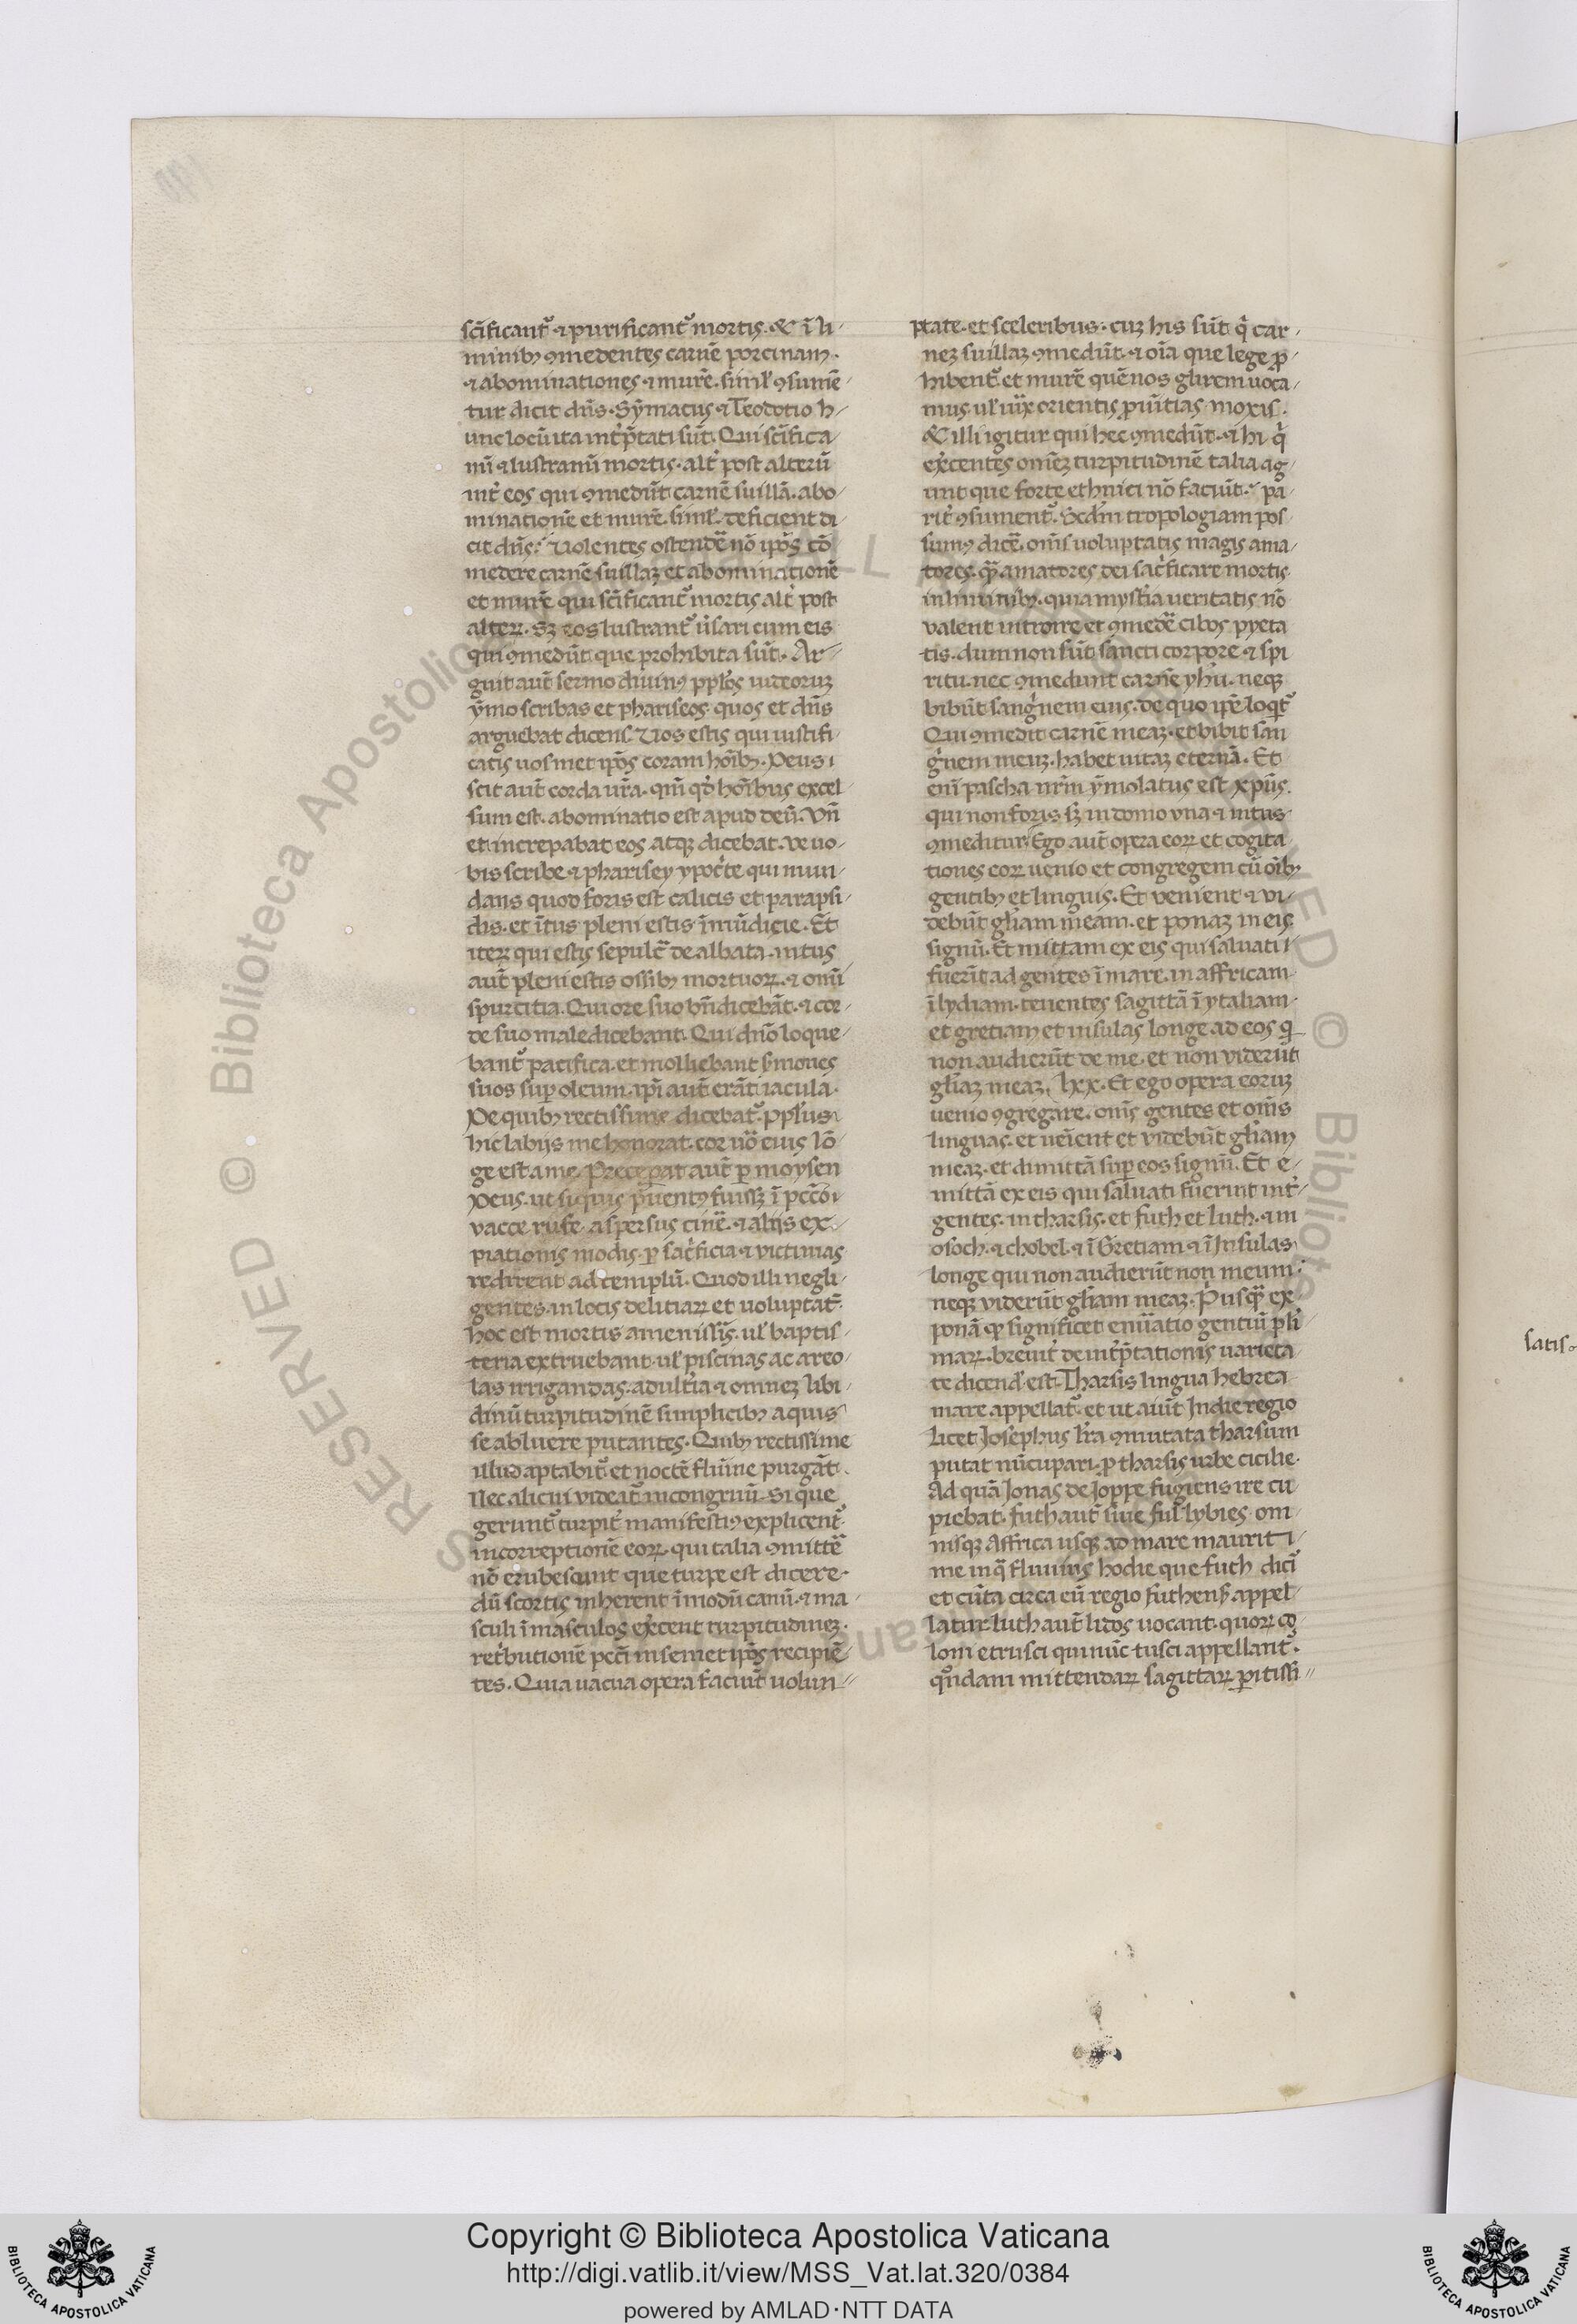 sc̄ificant᷑ ⁊ purificant᷑ mortis. & ī li-
minibꝫ ꝯmedentes carnē porcinam.
⁊ abominationes ⁊ murē. siml̄ ꝯsumē-
tur dicit dn̄s. Sȳmacus ⁊ Teodotio h-
unc locū ita int̓p̄tati sūt. Qui sc̄ifica-
nt᷑ ⁊ lustrant᷑ mortis. alt̓ post alterū
int̓ eos qui ꝯmedūt carnē suillā. abo-
minationē et murē. siml̄. deficient di-
cit dn̄s. Volentes ostendē nō ip̄os cō-
medere carnē suillaꝫ et abominationē
et murē qui sc̄ificant᷑ mortis alt̓ post
alteꝝ. Sꝫ eos lustrant᷑ ūsari cum eis
qui ꝯmedūt que prohibita sūt. Ar-
guit aut̄ sermo diuinꝰ pplōs iudeoruꝫ
ȳmo scribas et phariseos quos et dn̄s
arguebat dicens. Vos estis qui iustifi-
catis uosmet ip̄os coram hoībꝫ. Deus
scit aut̄ corda ur̄a. qm̄ qd̓ hoībus excel-
sum est. abominatio est apud deū. Vn̄
et increpabat eos atqꝫ dicebat. Ve uo-
bis scribe ⁊ pharisey ypoc̓te qui mun-
dans quod foris est calicis et parapsi-
dis. et ītus pleni estis īmūdicie. Et
iteꝝ qui estis sepulc̄ dealbata. intus
aut̄ pleni estis ossibꝫ mortuoꝝ. ⁊ omī
spurcitia. Qui ore suo bn̄dicebāt. ⁊ cor-
de suo maledicebant. Qui dn̄o loque-
bant᷑ pacifica. et molliebant s̓mones
suos suꝑ oleum. ip̄i aut̄ erāt iacula.
De quibꝫ rectissime dicebat᷑. Pplus
hic labijs me honorat. cor uō eius lō-
ge est a me. Precepat aut̄ ꝑ moysen
Deus. ut siquis p̄uentꝰ fuisꝫ ī pccō
vacce rufe. aspersus cinē. ⁊ alijs ex-
piationis modis. ꝑ sac̓ficia ⁊ victimas
redirent ad templū. Quod illi negli-
gentes. in locis delitiaꝝ et uoluptat̄.
hoc est mortis amenissīs. ul̓ baptis-
teria extruebant. ul̓ piscinas ac areo-
las irrigandas. adult̓ia ⁊ omneꝫ libi-
dinū turpitudinē simplicibꝫ aquis
se abluere putantes. Quibꝫ rectissime
illud aptabit᷑. et noctē flūine purgāt.
Nec alicui videat᷑ incongruū. Si que
gerunt᷑ turpit̓ manifestiꝰ explicent᷑.
in correptionē eoꝝ. qui talia ꝯmittē
nō erubescunt que turpe est dicere.
dū scortis inherent ī modū canū. ⁊ ma-
sculi ī masculos ex̓cent turpitudineꝫ.
ret̓butionē pcc̄i in semet ip̄os recipiē-
tes. Quia uacua opera faciūt uolun-
ptate. et sceleribus. cuꝫ his sūt q̓ car-
neꝫ suillaꝫ ꝯmedūt. ⁊ oīa que lege ꝓ-
hibent᷑. et murē quē nos glirem uoca-
mus. ul̓ iux̄ orientis ꝓuītias moxis.
& illi igitur qui hec ꝯmedūt. ⁊ hi q̓
ex̓centes omēꝫ turpitudinē talia ag-
unt que forte ethnici nō faciūt. pa-
rit̓ ꝯsument᷑. Scdm̄ tropologiam pos-
sumꝰ dicē. om̄s uoluptatis magis ama-
tores. qᷓ amatores dei sac̓ficare mortis
in liminibꝫ. quia myst̓ia ueritatis nō
valent introire et ꝯmedē cibos pyeta
tis. dum non sūt sancti corpore ⁊ spi
ritu. nec ꝯmedunt carnē yhu. neqꝫ
bibūt sang̓nem eius. de quo ip̄e loqt᷑
Qui ꝯmedit carnē meaꝫ. et bibit san
g̓nem meuꝫ. habet uitaꝫ eternā. Et
enī pascha nr̄m ȳmolatus est xp̄us.
qui non foris sꝫ in domo vna ⁊ intus
ꝯmeditur. Ego aut̄ opera eoꝝ et cogita
tiones eoꝝ uenio et congregem cū oībꝫ
gentibꝫ et linguis. Et venient ⁊ vi-
debūt gl̄iam meam. et ponaꝫ in eis
signū. Et mittam ex eis qui saluati
fuerīt ad gentes ī mare. in affricam
ī lydiam. tenentes sagittā ī ytaliam
et gretiam et insulas longe ad eos q̓
non audierūt de me. et non viderūt
gl̄iaꝫ meaꝫ. lxx. Et ego opera eoruꝫ
uenio ꝯgregare. om̄s gentes et om̄s
linguas. et ueīent et videbūt gl̄iam
meaꝫ. et dimittā suꝑ eos signū. Et e-
mittā ex eis qui saluati fuerint int̓
gentes. in tharsis. et futh et luth. ⁊ in
osoch. ⁊ chobel. ⁊ ī Gretiam ⁊ ī Insulas
longe qui non audierūt non meum.
neqꝫ viderūt gl̄iam meaꝫ. Pusqᷓ ex
ponā qͥ significet enūatio gentiū pl̄i
maꝝ. breuit̓ de int̓p̄tationis uarieta
te dicend̓ est. Tharsis lingua hebrea
mare appellat᷑. et ut aiūt Indie regio
Licet Josephus lr̄a ꝯmutata tharsum
putat nūcupari. ꝓ tharsis urbe cicilie.
Ad quā Jonas de Joppe fugiens ire cu
piebat. futh aut̄ siue ful lybies om-
nisqꝫ Affrica usqꝫ ad mare maurit̄i
me in qᷓ fluuius hodie que futh dicī
et cūta circa eū regio futhens̓ appel-
latur. Luth aut̄ lidos uocant. quoꝝ co
loni etrusci qui nūc tusci appellant᷑.
qn̄dam mittendaꝝ sagittaꝝ ꝑitissi-
satis.
Copyright © Biblioteca Apostolica Vaticana
http://digi.vatlib.it/view/MSS_Vat.lat.320/0384
powered by AMLAD·NTT DATA